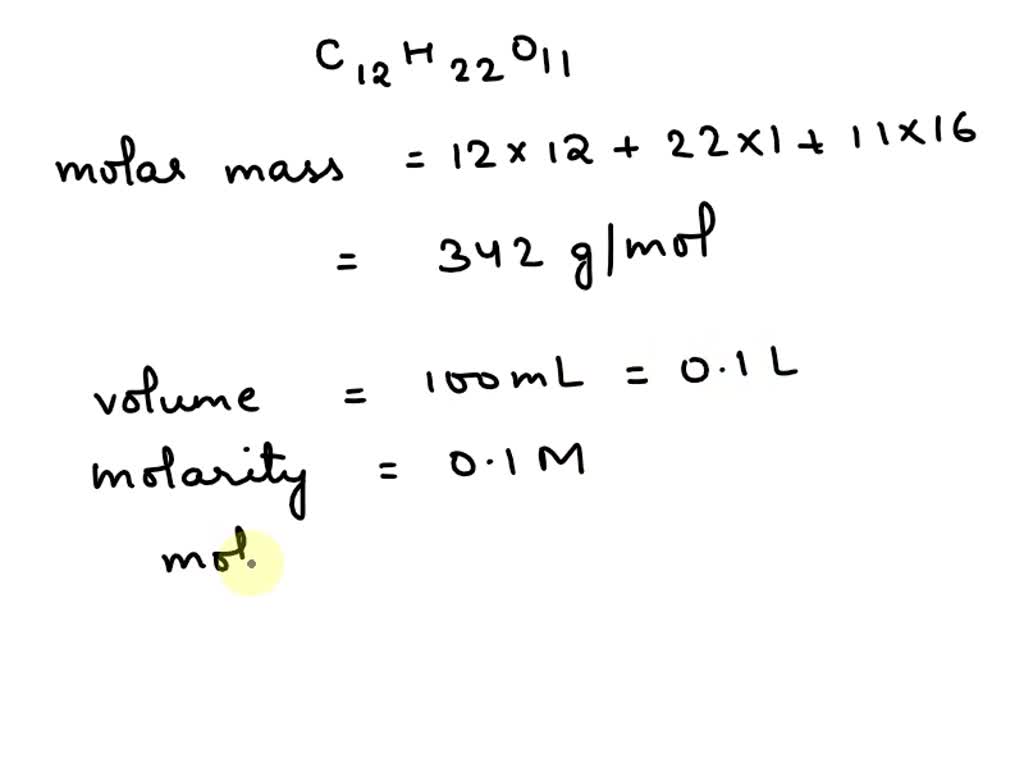 C12H22O11
molar mass = 12 × 12 + 22 × 1 + 11 × 16
= 342 g/mol
volume = 100 mL = 0.1 L
molarity = 0.1 M
mol